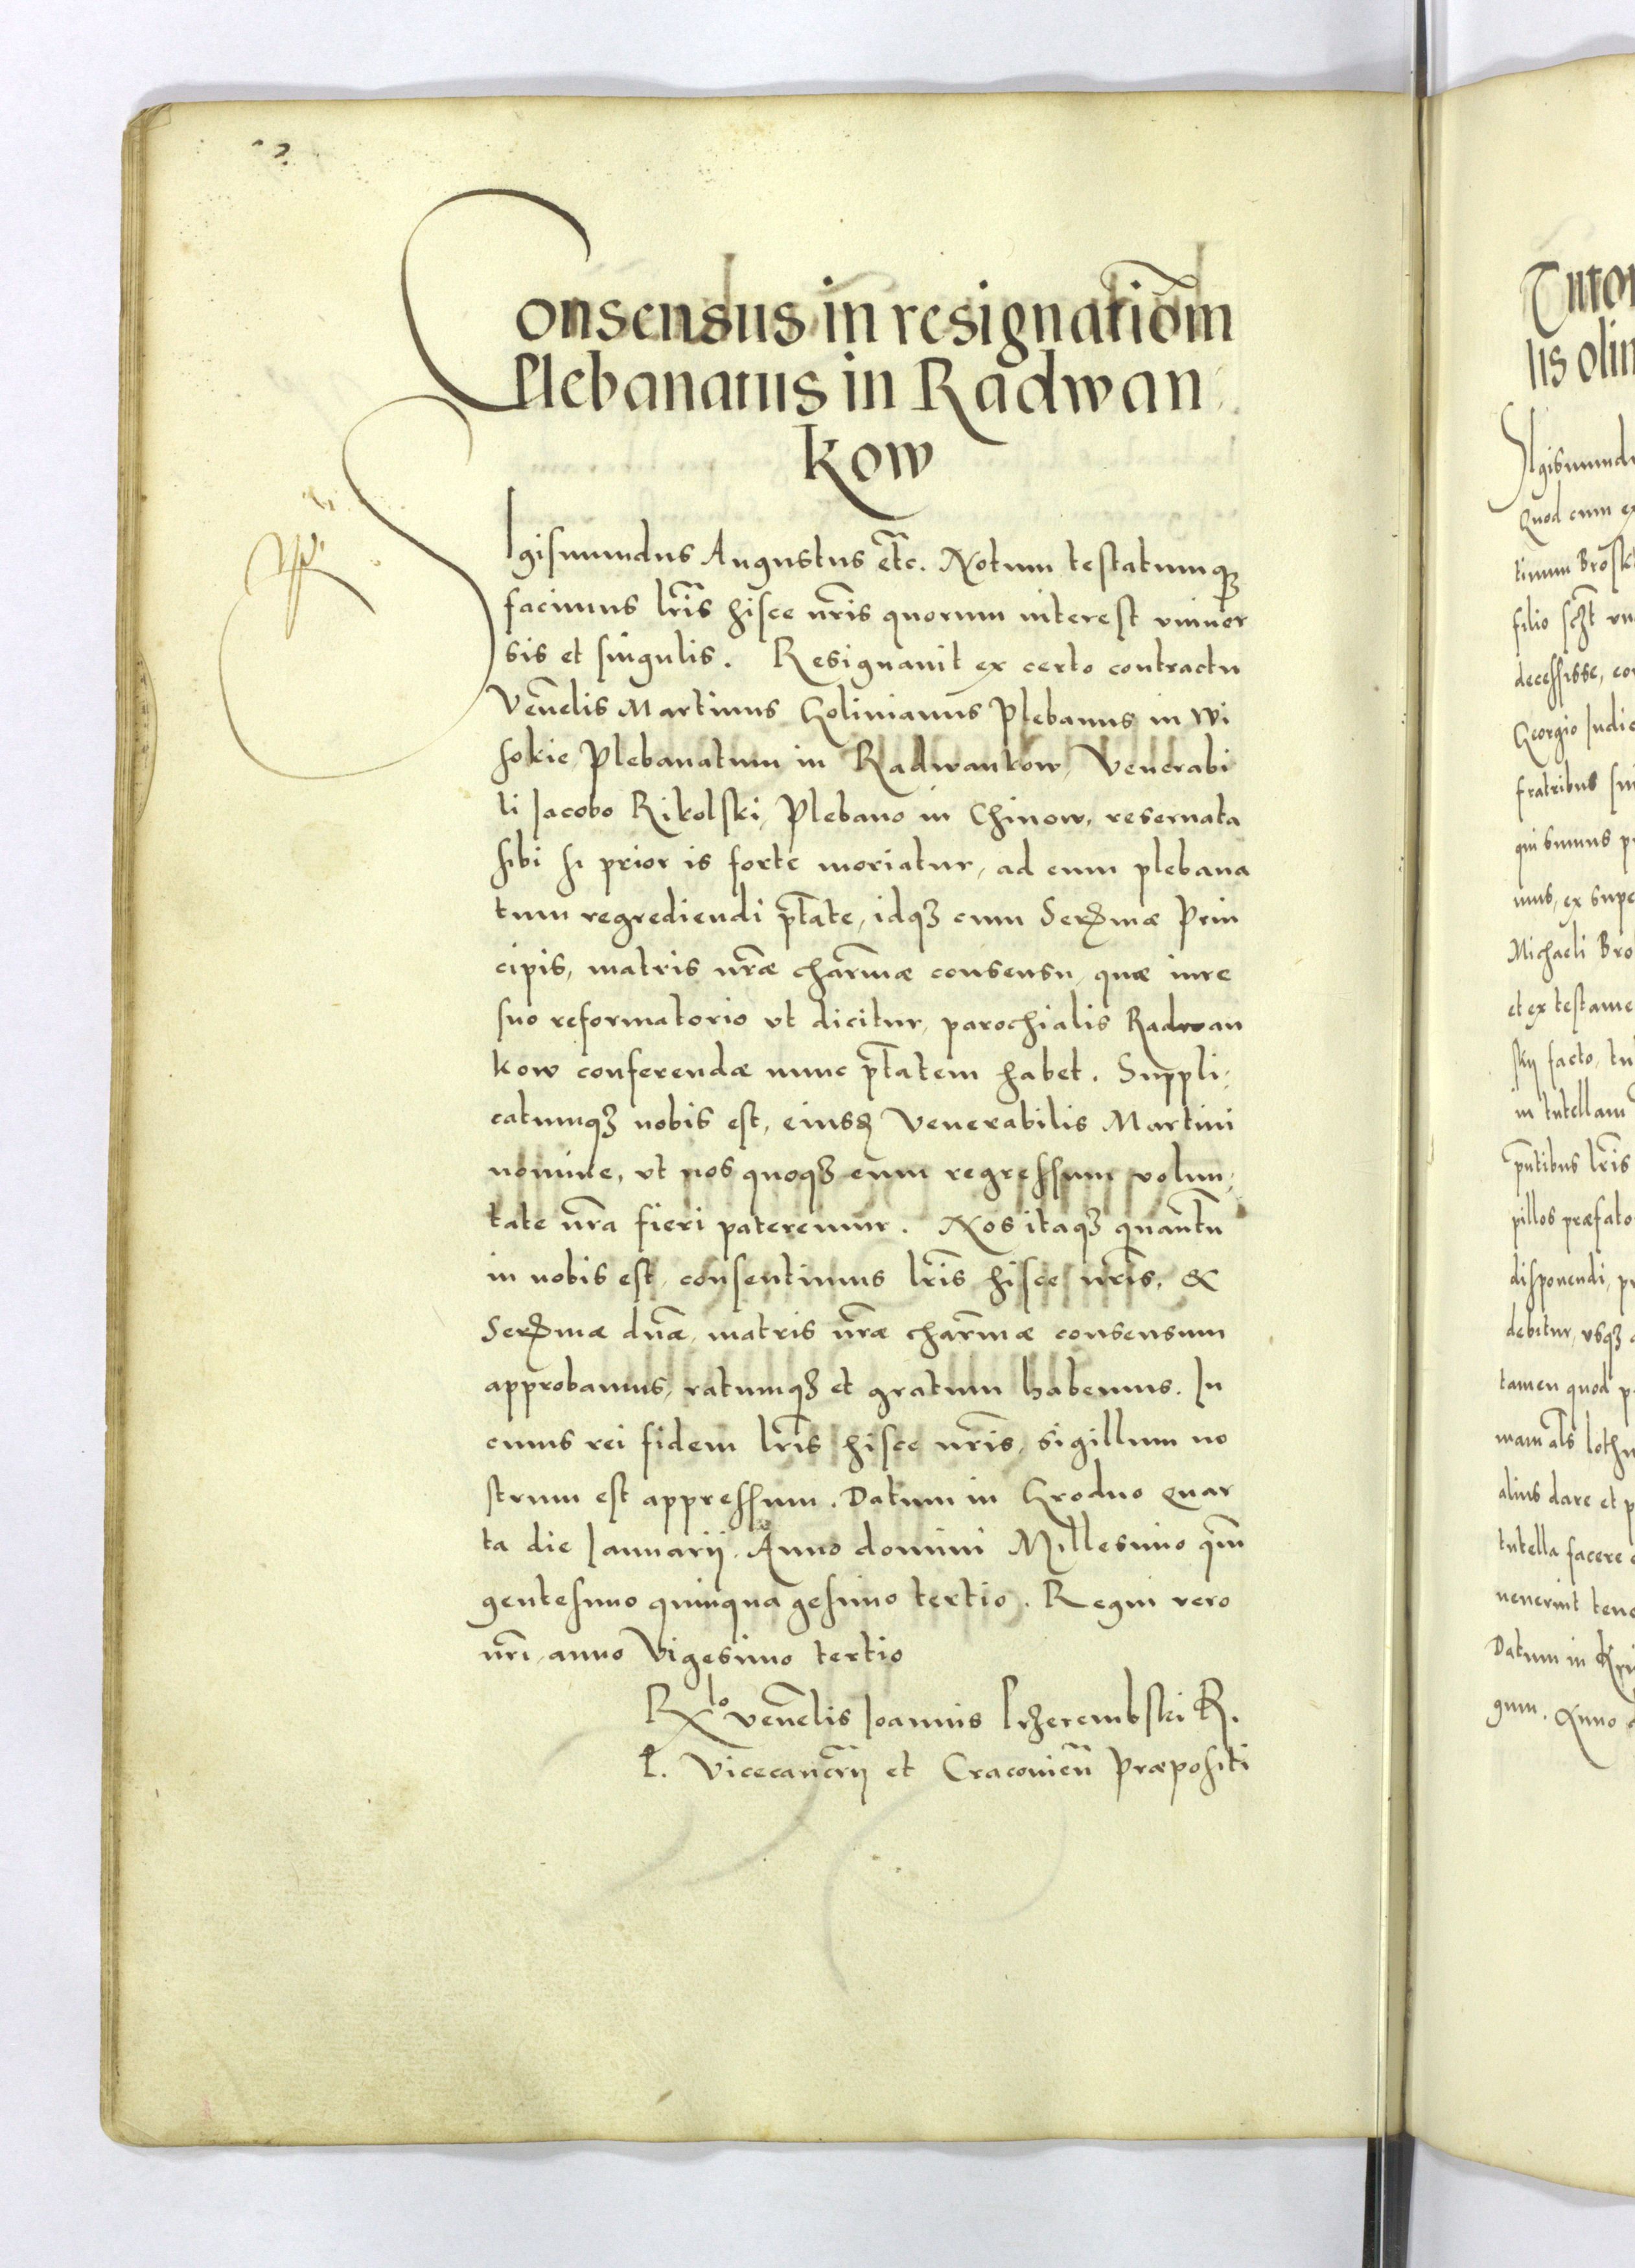 Consensus in resignatiom̄
Plebanatus in Radwan
kow
SIgismundus Augustus etc̃. Notum testatumqȝ
facimus lr̃is hisce nr̃is quorum interest univer
sis et singulis. Resignavit ex certo contractu
Ven̄elis Martinus Golinianus Plebanus in Wi
sokie Plebanatum in Radwankow, Venerabi
li Jacobo Rikolski, Plebano in Chinow, reservata
sibi si prior is forte moriatur, ad eum plebana
tum regrediendi pt̃ate, idqȝ cum Serꝫmæ Prin
cipis, matris nr̃æ char̃mæ consensu, quæ iure
suo reformatorio ut dicitur, parochialis Radwan
kow conferendæ nunc pt̃atem habet. Suppli,
catumqȝ nobis est, eiusꝫ Venerabilis Martini
nomine, ut nos quoqȝ eum regressum volun,
tate nr̃a fieri pateremur. Nos itaqȝ quant̃u
in nobis est, consentimus lr̃is hisce nr̃is, &
Serꝫmæ dn̄æ, matris nr̃æ char̃mæ consensum
approbamus, ratumqȝ et gratum habemus. In
cuius rei fidem lr̃is hisce nr̃is, sigillum no
strum est appressum. Datum in Grodno Quar
ta die Januarij. Anno domini Millesimo qũin
gentesimo quinquagesimo tertio. Regni vero
nr̃i, anno Vigesimo tertio
Rlo ven̄elis Joannis Przerembski R.
P. Vicecanc̃rij et Cracovien̄ Præpositi
Tutor
lis olim
SIgismundu
Quod cum ex
timum Brosk
filio sc̃ht un
decessisse, con
Georgio Judic
fratribus su
quibumus p
mus, ex supe
Michaeli Bro
et ex testame
skij facto, tu
in tutellam
pn̄tibus lr̃is
pillos præfato
disponendi, pr
debitur, usqȝ a
tamen quod p
mam al̃s loth
alius dare et p
tutella facere
venerint tene
Datum in Kni
gnm. Anno d